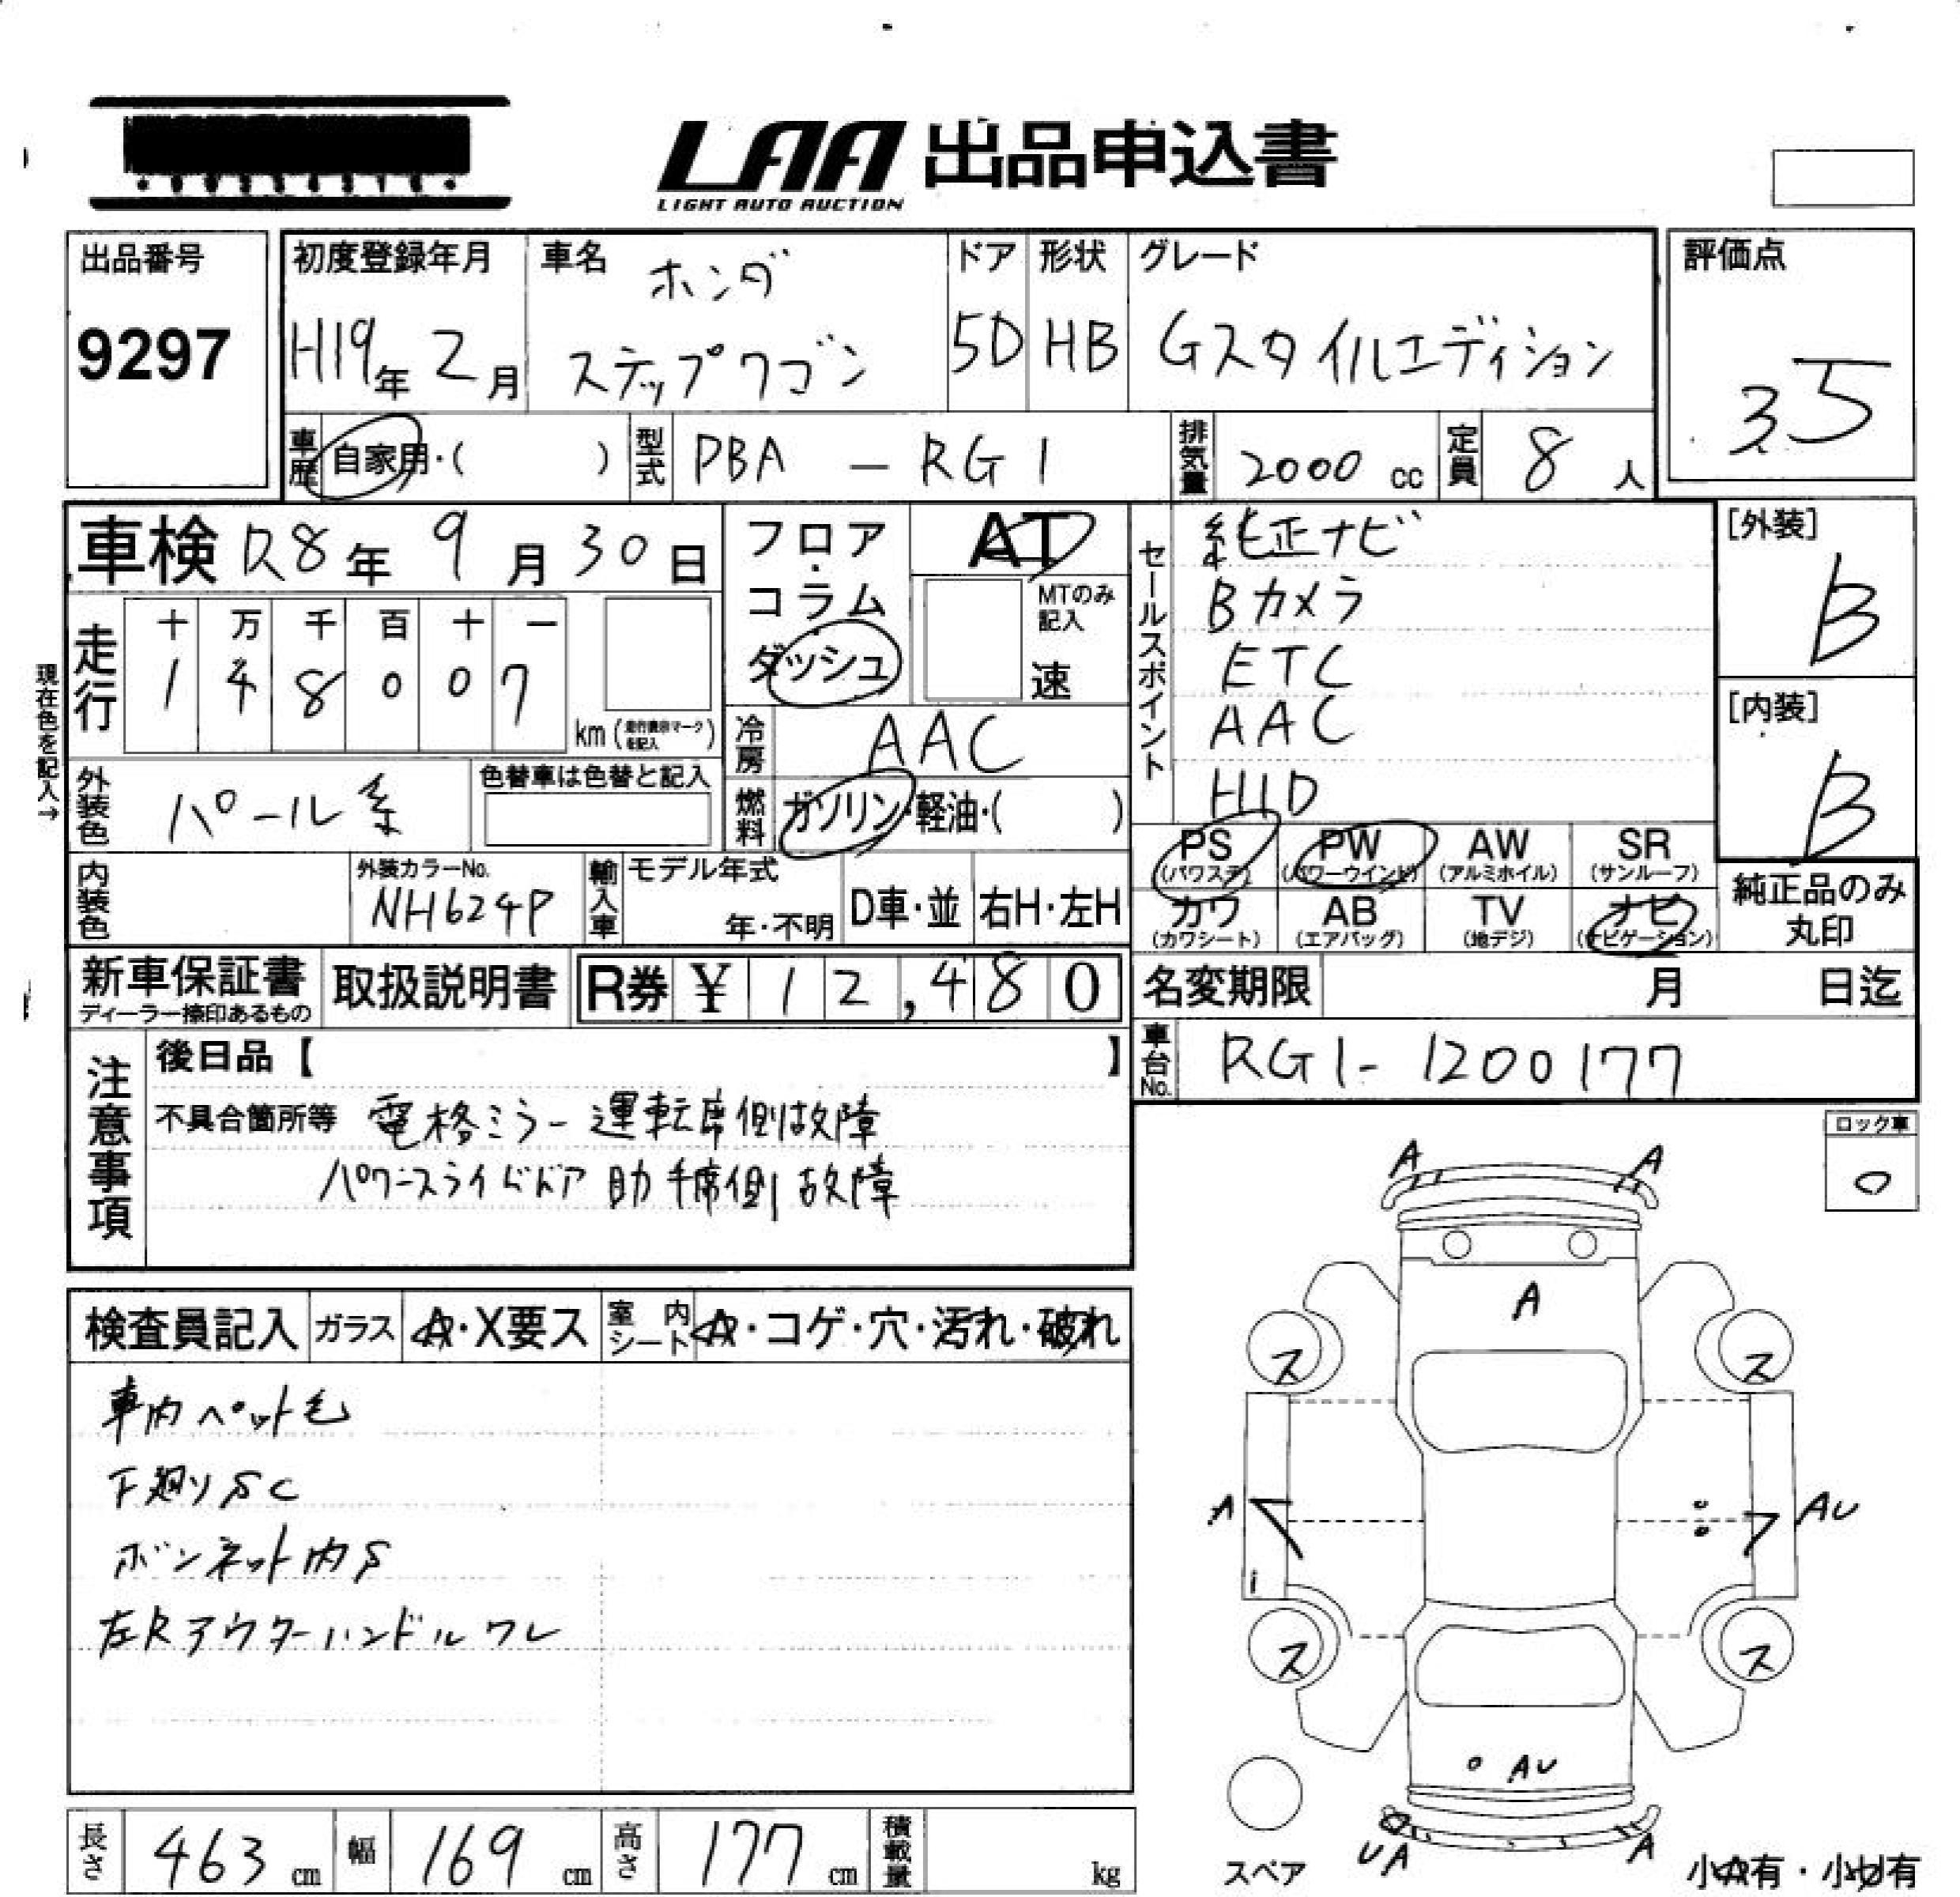 LAA 出品申込書
LIGHT AUTO AUCTION
出品番号
9297
初度登録年月
H19年 2月
車名 ホンダ
ステップワゴン
ドア
5D
形状
HB
グレード
Gスタイルエディション
評価点
3.5
車歴 自家用・( )
型式 PBA - RG1
排気量 2000 cc
定員 8 人
車検 R8年 9月 30日
走行
十 万 千 百 十 一
1 4 8 0 0 7
km (走行表示マークを記入)
現在色を記入→
フロア・コラム・ダッシュ
AT
MTのみ記入
速
冷房 AAC
燃料 ガソリン・軽油・( )
セールスポイント
純正ナビ
Bカメラ
ETC
AAC
HID
[外装]
B
[内装]
B
外装色 パール系
色替車は色替と記入
内装色
外装カラーNo.
NH624P
輸入車
モデル年式
年・不明
D車・並
右H・左H
PS (パワステ)
PW (パワーウインド)
AW (アルミホイル)
SR (サンルーフ)
カワ (カワシート)
AB (エアバッグ)
TV (地デジ)
ナビ (ナビゲーション)
純正品のみ丸印
新車保証書
ディーラー捺印あるもの
取扱説明書
R券 ¥ 12,480
名変期限 月 日迄
車台No. RG1-1200177
注意事項
後日品【 】
不具合箇所等 電格ミラー運転席側故障
パワースライドドア 助手席側故障
ロック車
検査員記入
ガラス A・X要ス
室内シート A・コゲ・穴・汚れ・破れ
車内ペット毛
下廻りSC
ボンネット内S
左Rアウターハンドルワレ
A A
A
ス ス
A AU
i
ス ス
AU
UA A
スペア
小A有・小U有
長さ 463 cm
幅 169 cm
高さ 177 cm
積載量 kg